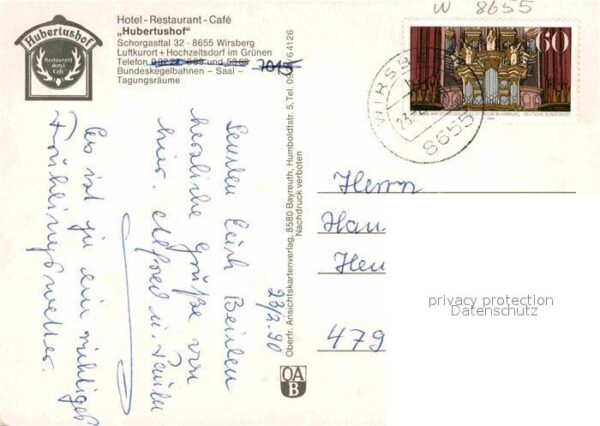 Hubertushof
Restaurant
Hotel
Café
Hotel-Restaurant-Café
„Hubertushof"
Schorgasttal 32 · 8655 Wirsberg
Luftkurort + Hochzeitsdorf im Grünen
Telefon
7015
Bundeskegelbahnen – Saal –
Tagungsräume
W 8655
60
DEUTSCHE BUNDESPOST
WIRSB
8655
23/2.90
herzliche Grüße von
hier. Alfred u.
Es ist ja ein richtiges
Frühlingswetter.
Oberfr. Ansichtskartenverlag, 8580 Bayreuth, Humboldtstr. 5, Tel.
Nachdruck verboten
OA
B
Herrn
Han
Heu
479
privacy protection
Datenschutz